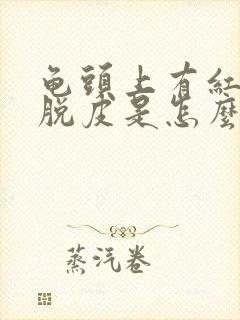 龟頭上有紅
脱皮是怎麼
蒸汽卷